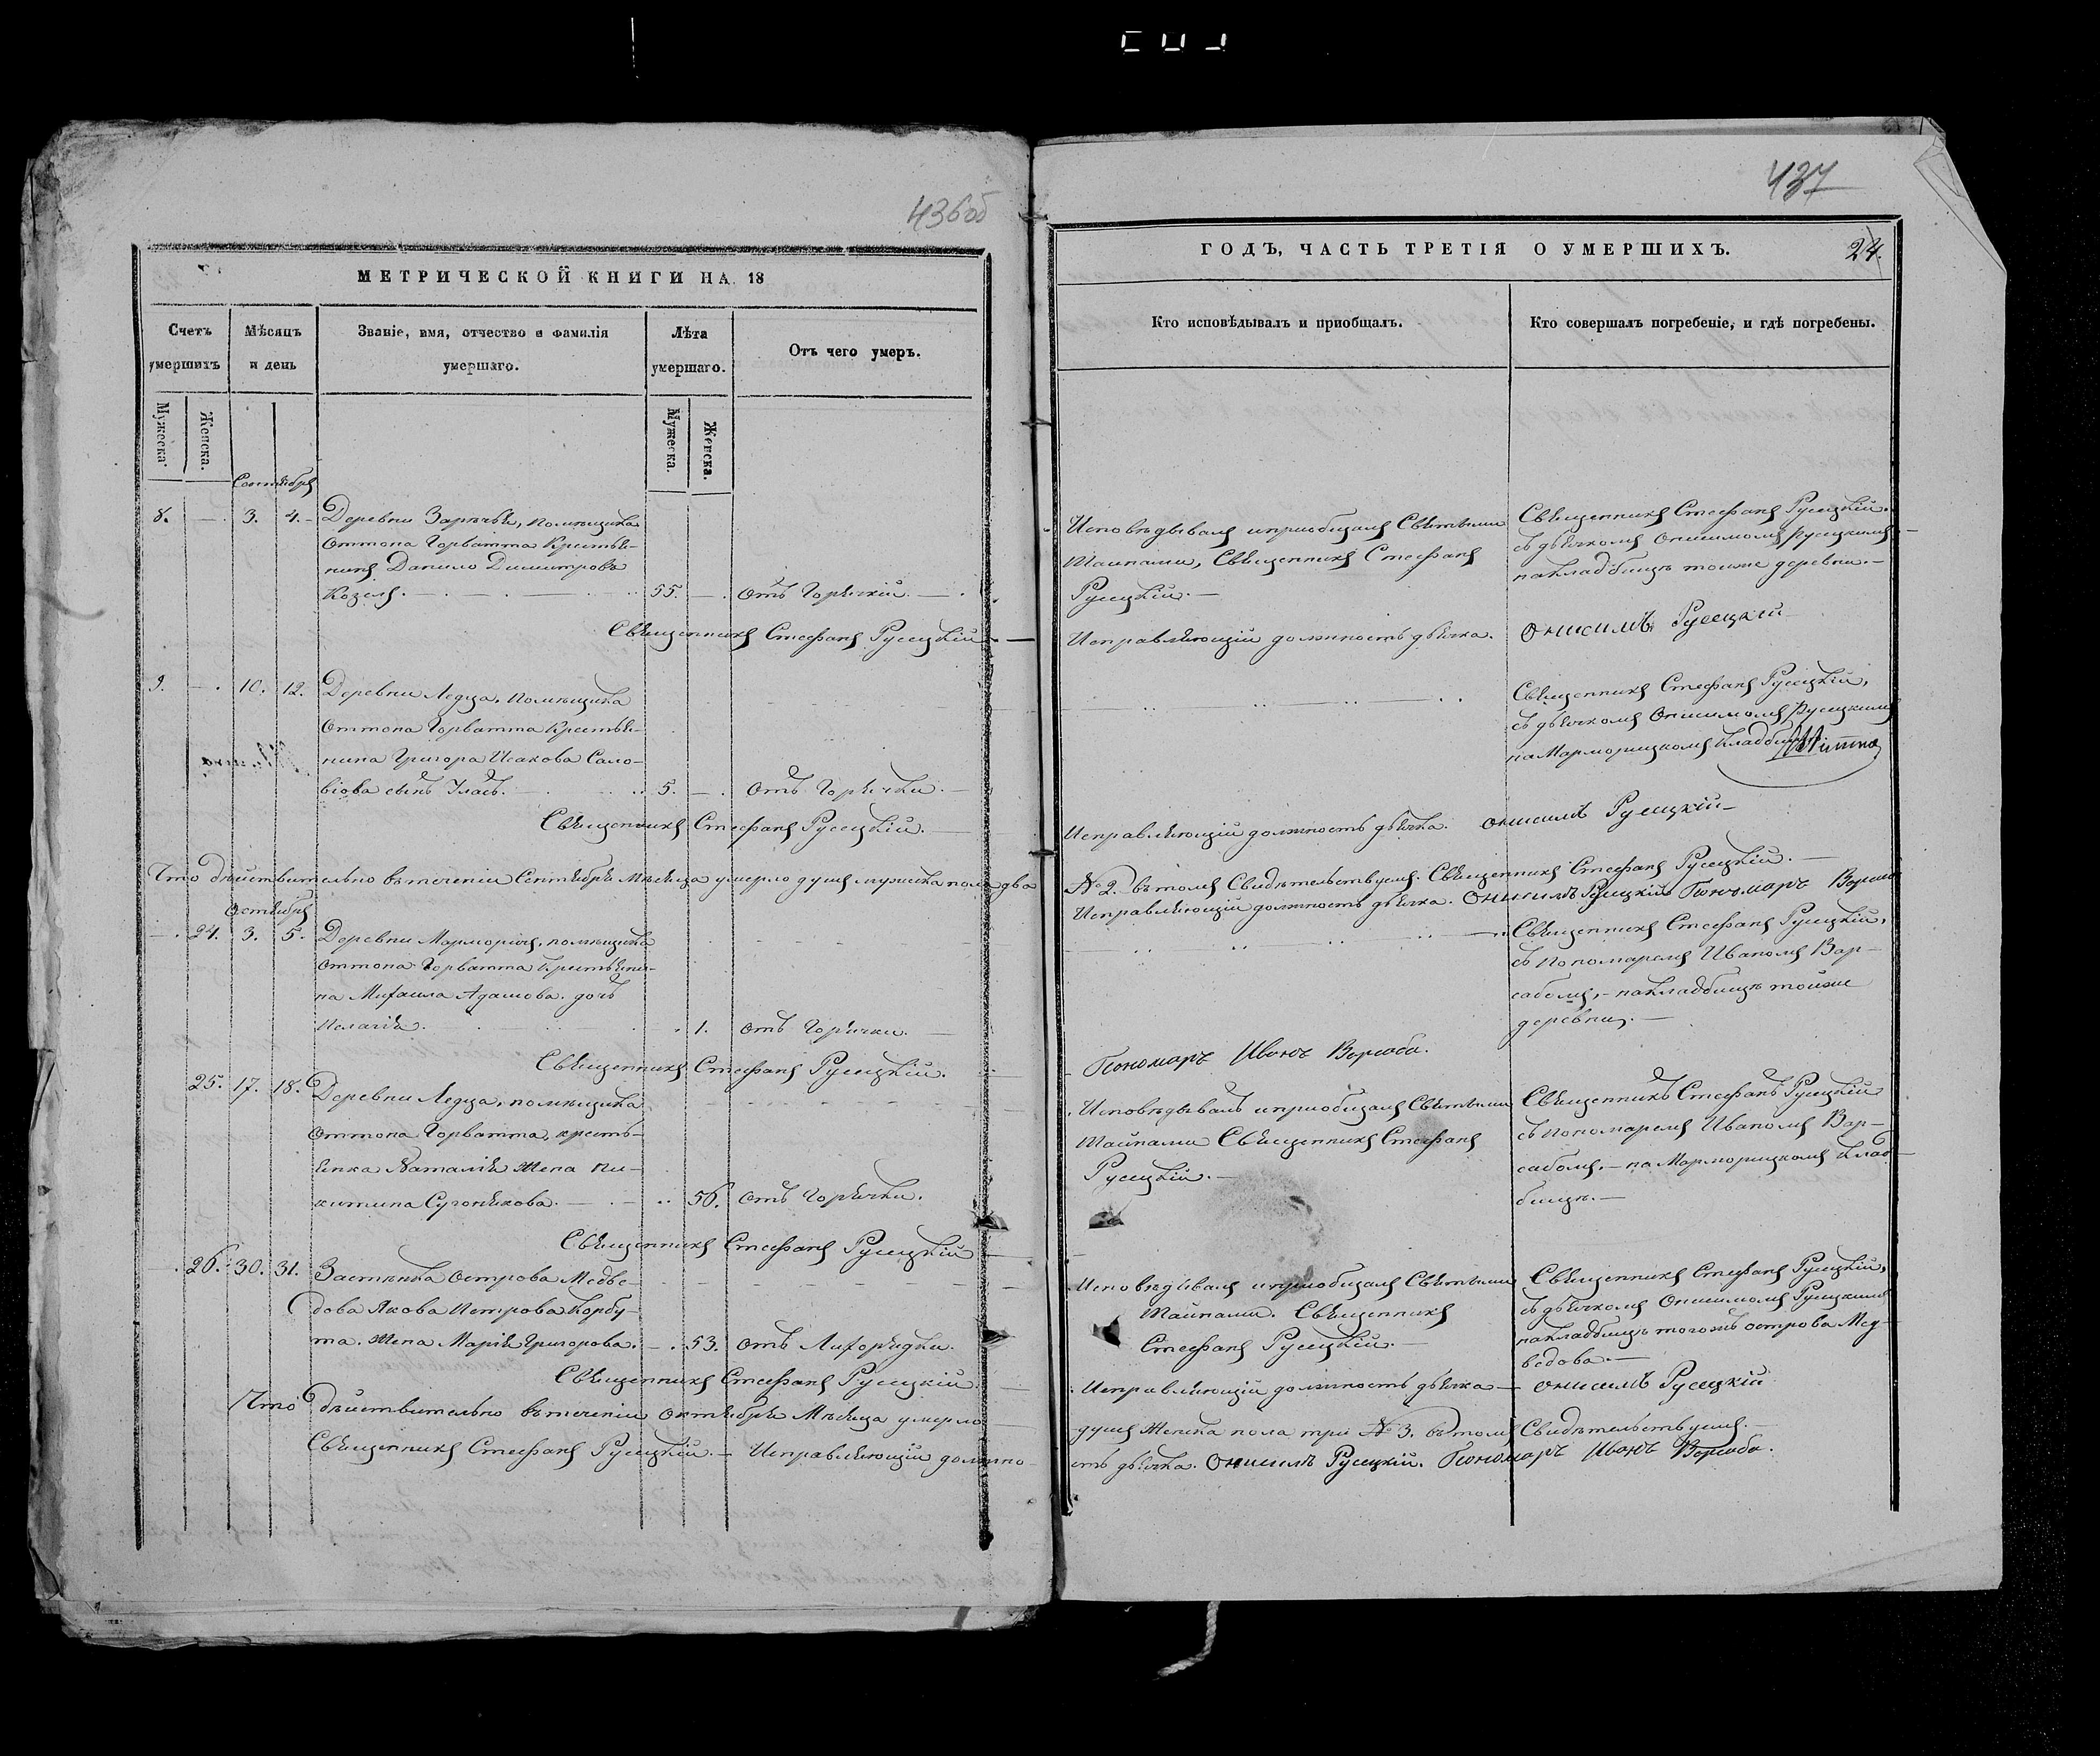 436об
МЕТРИЧЕСКОЙ КНИГИ НА 18
Счетъ умершихъ
Мѣсяцъ и день
Званіе, имя, отчество и фамилія умершаго.
Лѣта умершаго.
Отъ чего умеръ.
Мужеска.
Женска.
Мужеска.
Женска.
Сентября
8. — 3. 4. Деревни Зарѣчья, помѣщика
Оттона Горватта Крестья-
нинъ Данило Димитровъ
Козелъ. 55. — Отъ Горячкій.
Священникъ Стефанъ Русецкій
9. — 10. 12. Деревни Ледца, помѣщика
Оттона Горватта Крестья-
нина Григора Исакова Соло-
віова сынъ Уласъ. 5. — Отъ Горячки.
Священникъ Стефанъ Русецкій.
Что дѣйствительно въ теченіи Сентября Мѣсяца умерло душъ мужеска пола два
Октября
— 24. 3. 5. Деревни Марморичъ, помѣщика
Оттона Горватта Крестьяни-
на Михаила Адамова дочь
Пелагія. 1. Отъ Горячки.
Священникъ Стефанъ Русецкій.
25. 17. 18. Деревни Ледца, помѣщика
Оттона Горватта, кресть-
янка Наталія Жена Ни-
китина Сугонякова. 56. Отъ Горячки.
Священникъ Стефанъ Русецкій
— 26. 30. 31. Застѣнка Острова Медве-
дова Якова Петрова Корбу-
та. Жена Марія Григорова. — 53. Отъ Лихорядки.
Священникъ Стефанъ Русецкій
Что дѣйствительно въ теченіи Октября Мѣсяца умерло
Священникъ Стефанъ Русецкій. — Исправляющій должно-
437
ГОДЪ, ЧАСТЬ ТРЕТІЯ О УМЕРШИХЪ.
24.
Кто исповѣдывалъ и приобщалъ.
Кто совершалъ погребеніе, и гдѣ погребены.
Исповѣдывалъ и приобщалъ Святыми
Тайнами, Священникъ Стефанъ
Русецкій. —
Священникъ Стефанъ Русецкій.
съ дьячкомъ Онисимомъ Русецкимъ —
на кладбищѣ тоижъ деревни. —
Исправляющій должность дьячка. Онисимъ Русецкій
Священникъ Стефанъ Русецкій,
съ дьячкомъ Онисимомъ Русецкимъ
на Марморицкомъ кладбищѣ
Исправляющій должность дьячка. Онисимъ Русецкій
№ 2. въ томъ Свидѣтельствуемъ. Священникъ Стефанъ Русецкій. —
Исправляющій должность дьячка. Онисимъ Русецкій Пономаръ
Священникъ Стефанъ Русецкій,
съ Пономаремъ Иваномъ Вар-
сабомъ, — на кладбищѣ тойже
деревни. —
Пономаръ Иванъ Варсаба.
Исповѣдывалъ и приобщалъ Святыми
Тайнами Священникъ Стефанъ
Русецкій. —
Священникъ Стефанъ Русецкій
съ Пономаремъ Иваномъ Вар-
сабомъ, — на Марморицкомъ Клад-
бищѣ. —
Исповѣдывалъ и приобщалъ Святыми
Тайнами. Священникъ
Стефанъ Русецкій. —
Священникъ Стефанъ Русецкій,
съ дьячкомъ Онисимомъ Русецкимъ
на кладбищѣ тогожъ острова Мед-
ведова. —
Исправляющій должность дьячка — Онисимъ Русецкій
душъ Женска пола три № 3. въ томъ Свидѣтельствуемъ. —
сть дьячка. Онисимъ Русецкій. Пономаръ Иванъ Варсаба.